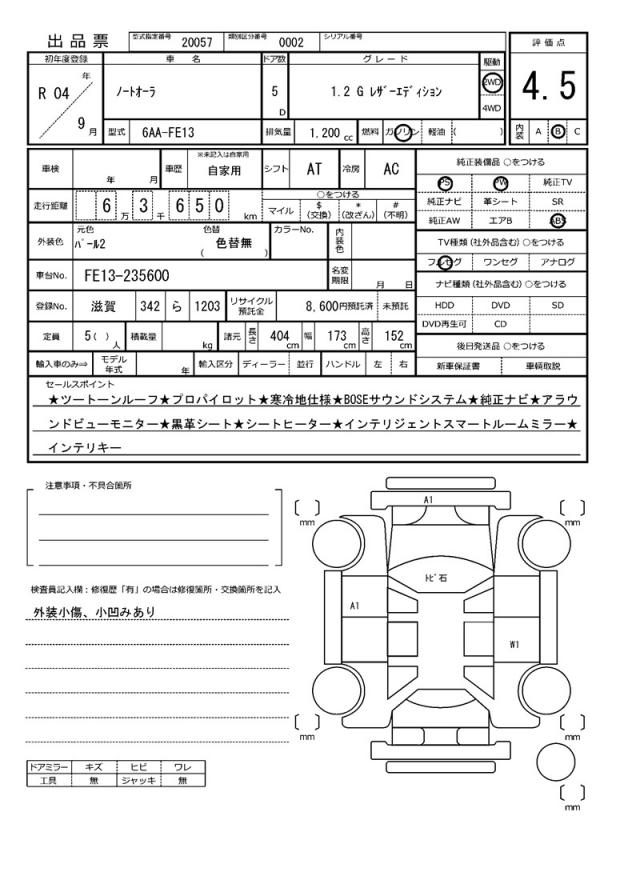 出品票 型式指定番号 20057 類別区分番号 0002 シリアル番号
評価点
4.5
内装 A B C
初年度登録 車名 ドア数 グレード 駆動
R 04 年 9 月 ノートオーラ 5 D 1.2 G レザーエディション 2WD 4WD
型式 6AA-FE13 排気量 1.200 cc 燃料 ガソリン 軽油 ( )
車検 年 月 車歴 ※未記入は自家用 自家用 シフト AT 冷房 AC
走行距離 6 万 3 千 6 5 0 km ○をつける
マイル $(交換) *(改ざん) #(不明)
外装色 元色 パール2 色替 色替無 ( ) カラーNo. 内装色
車台No. FE13-235600 名変期限 月 日
登録No. 滋賀 342 ら 1203 リサイクル預託金 8,600円預託済 未預託
定員 5( ) 人 積載量 kg 諸元 長さ 404 cm 幅 173 cm 高さ 152 cm
輸入車のみ⇒ モデル年式 年 輸入区分 ディーラー 並行 ハンドル 左 右
純正装備品 ○をつける
PS PW 純正TV
純正ナビ 革シート SR
純正AW エアB ABS
TV種類 (社外品含む) ○をつける
フルセグ ワンセグ アナログ
ナビ種類 (社外品含む) ○をつける
HDD DVD SD
DVD再生可 CD
後日発送品 ○をつける
新車保証書 車輌取説
セールスポイント
★ツートーンルーフ★プロパイロット★寒冷地仕様★BOSEサウンドシステム★純正ナビ★アラウ
ンドビューモニター★黒革シート★シートヒーター★インテリジェントスマートルームミラー★
インテリキー
注意事項・不具合箇所
検査員記入欄：修復歴「有」の場合は修復箇所・交換箇所を記入
外装小傷、小凹みあり
ドアミラー キズ ヒビ ワレ
工具 無 ジャッキ 無
A1
mm
mm
トビ石
A1
W1
mm
mm
mm